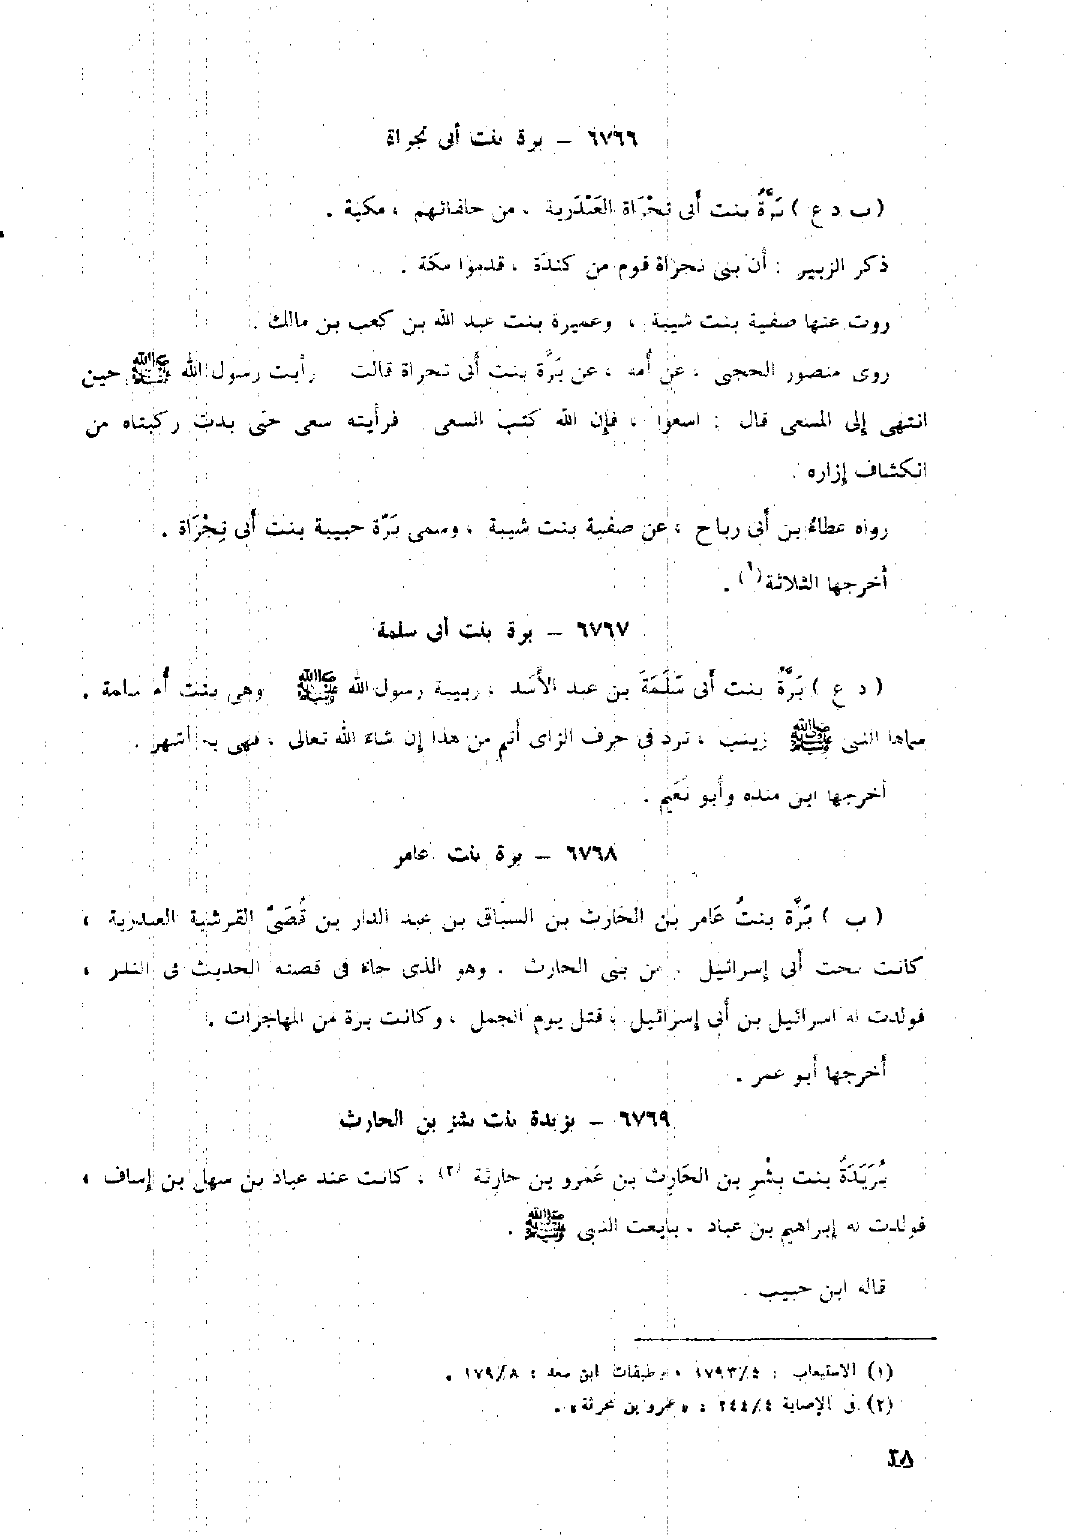 ٦٧٦٦ – برة بنت أبى تجراة
( ب د ع ) بَرَّةُ بنت أبى تِجْرَاة العَبْدَرية ، من حلفائهم ، مكية .
ذكر الزبير : أن بنى تجراة قوم من كندة ، قدموا مكة .
روت عنها صفية بنت شيبة ، وعميرة بنت عبد الله بن كعب بن مالك .
روى منصور الحجبى ، عن أمه ، عن بَرَّة بنت أبى تجراة قالت رأيت رسول الله ﷺ حين
انتهى إلى المسعى قال : اسعوا ، فإن الله كتب السعى فرأيته سعى حتى بدت ركبتاه من
انكشاف إزاره .
رواه عطاءُ بن أبى رباح ، عن صفية بنت شيبة ، وسمى بَرَّة حبيبة بنت أبى تِجْرَاة .
أخرجها الثلاثة(١) .
٦٧٦٧ – برة بنت أبى سلمة
( د ع ) بَرَّةُ بنت أبى سَلَمَةَ بن عبد الأَسَد ، ربيبة رسول الله ﷺ وهى بنت أُم سلمة .
سماها النبى ﷺ زينب ، ترد فى حرف الزاى أتم من هذا إن شاءَ الله تعالى ، فهى به أشهر .
أخرجها ابن منده وأبو نُعَيم .
٦٧٦٨ – برة بنت عامر
( ب ) بَرَّة بنتُ عَامر بن الحَارث بن السبَّاق بن عبد الدار بن قُصَىّ القرشية العبدرية ،
كانت تحت أبى إسرائيل ، من بنى الحارث . وهو الذى جاءَ فى قصته الحديث فى النذر ،
فولدت له اسرائيل بن أبى إسرائيل ، قتل يوم الجمل ، وكانت برة من المهاجرات .
أخرجها أبو عمر .
٦٧٦٩ – بريدة بنت بشر بن الحارث
بُرَيَدَةُ بنت بِشْرِ بن الحَارِث بن عَمرو بن حارثة (٢) ، كانت عند عباد بن سهل بن إساف ،
فولدت له إبراهيم بن عباد ، بايعت النبى ﷺ .
قاله ابن حبيب .
(١) الاستيعاب : ١٧٩٣/٤ ، وطبقات ابن سعد : ١٧٩/٨ .
(٢) فى الإصابة ٢٤٤/٤ : «عمرو بن حرثة» .
٢٨